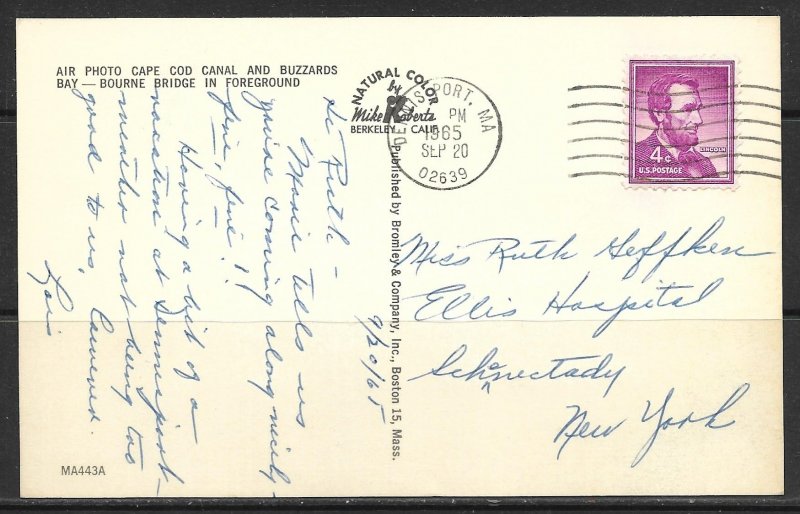 AIR PHOTO CAPE COD CANAL AND BUZZARDS
BAY — BOURNE BRIDGE IN FOREGROUND
NATURAL COLOR
by
Mike Roberts
BERKELEY CALIF.
DENNIS PORT, MA
PM
1965
SEP 20
02639
LINCOLN
4¢
U.S. POSTAGE
Published by Bromley & Company, Inc., Boston 15, Mass.
9/20/65
Hi Ruth –
Marie tells us
you're coming along nicely –
fine, fine!!
Having a bit of a
vacation at Dennisport –
weather not being too
good to us, however.
Lois
Miss Ruth Geffken
Ellis Hospital
Schenectady
New York
MA443A